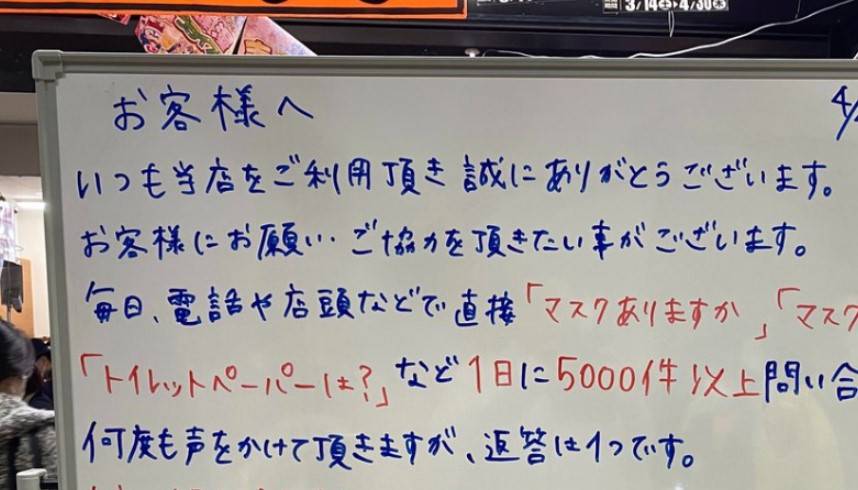 3/14㊏▸4/30㊍
お客様へ
4/
いつも当店をご利用頂き誠にありがとうございます。
お客様にお願い・ご協力を頂きたい事がございます。
毎日、電話や店頭などで直接「マスクありますか」「マスク
「トイレットペーパーは?」など1日に5000件以上問い合
何度も声をかけて頂きますが、返答は1つです。